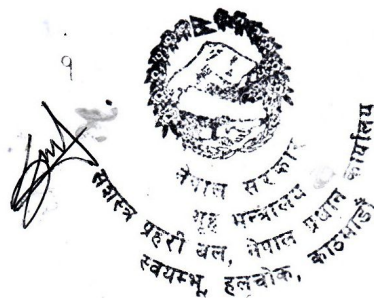 १
नेपाल सरकार
गृह मन्त्रालय
सशस्त्र प्रहरी बल, नेपाल प्रधान कार्यालय
स्वयम्भू, हलचोक, काठमाडौं